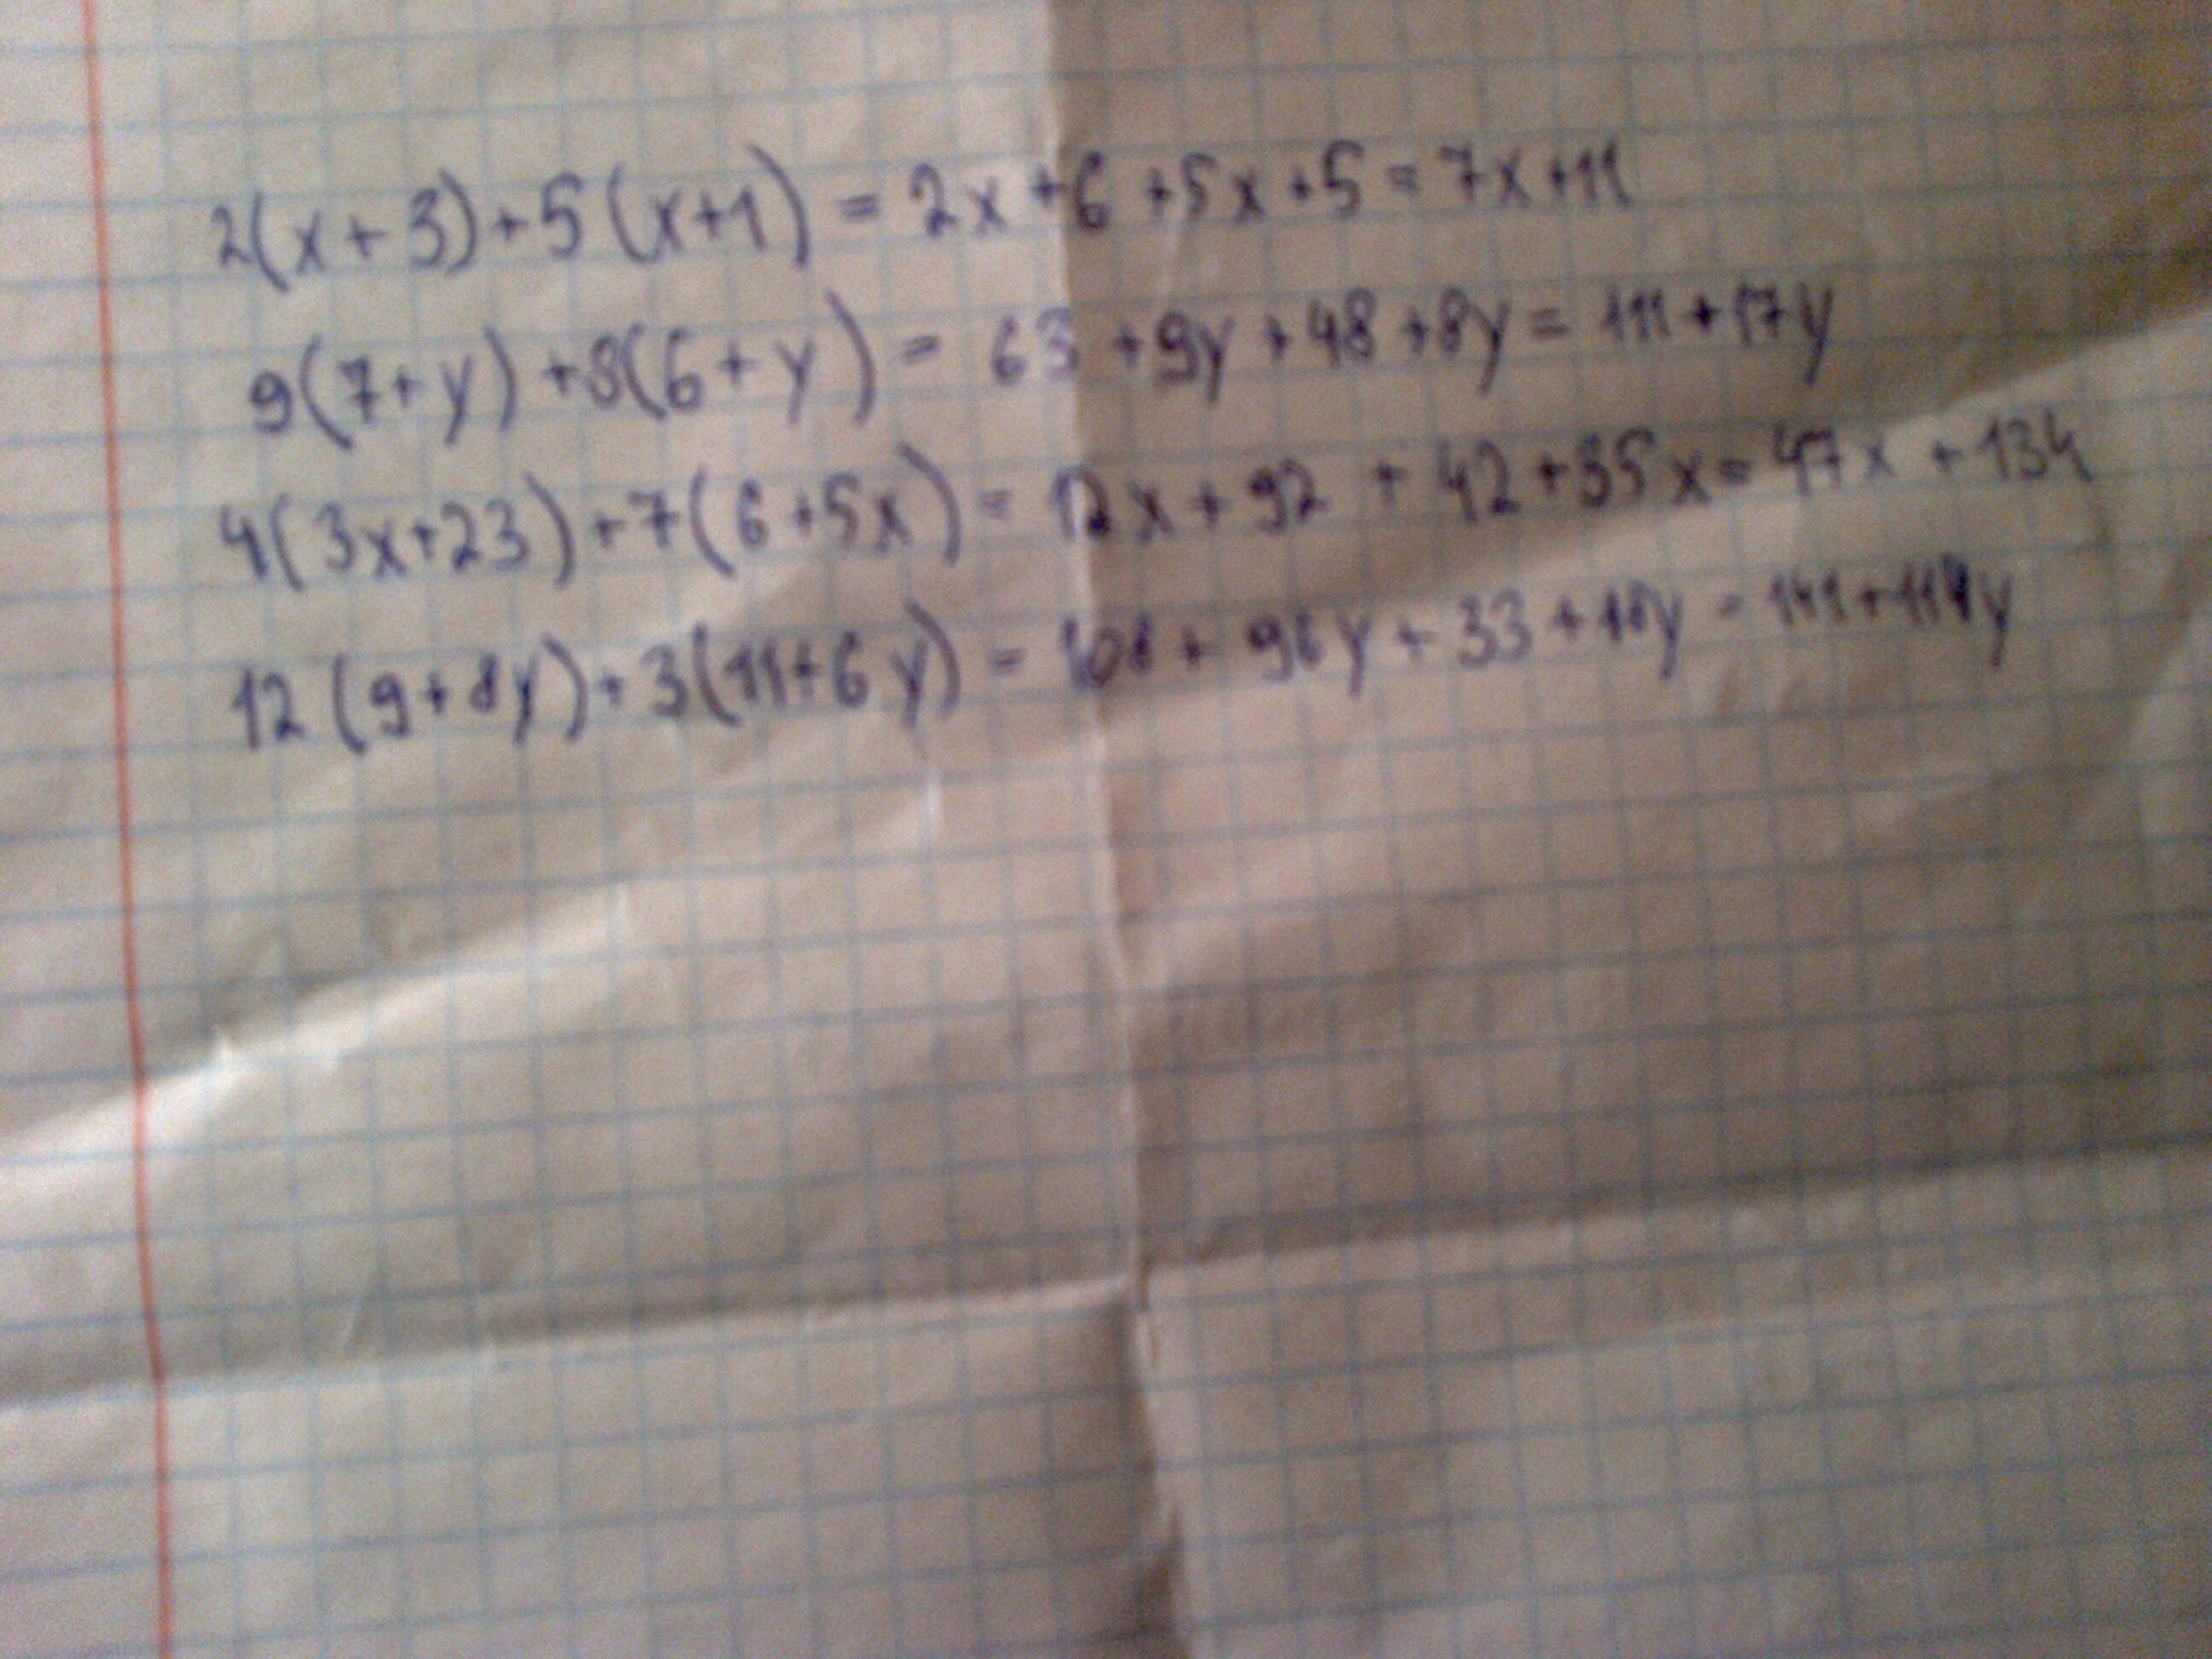 2(x+3)+5(x+1) = 2x+6+5x+5=7x+11
9(7+y)+8(6+y) = 63+9y+48+8y=111+17y
4(3x+23)+7(6+5x)=12x+92+42+35x=47x+134
12(9+8y)+3(11+6y)=108+96y+33+18y=141+114y